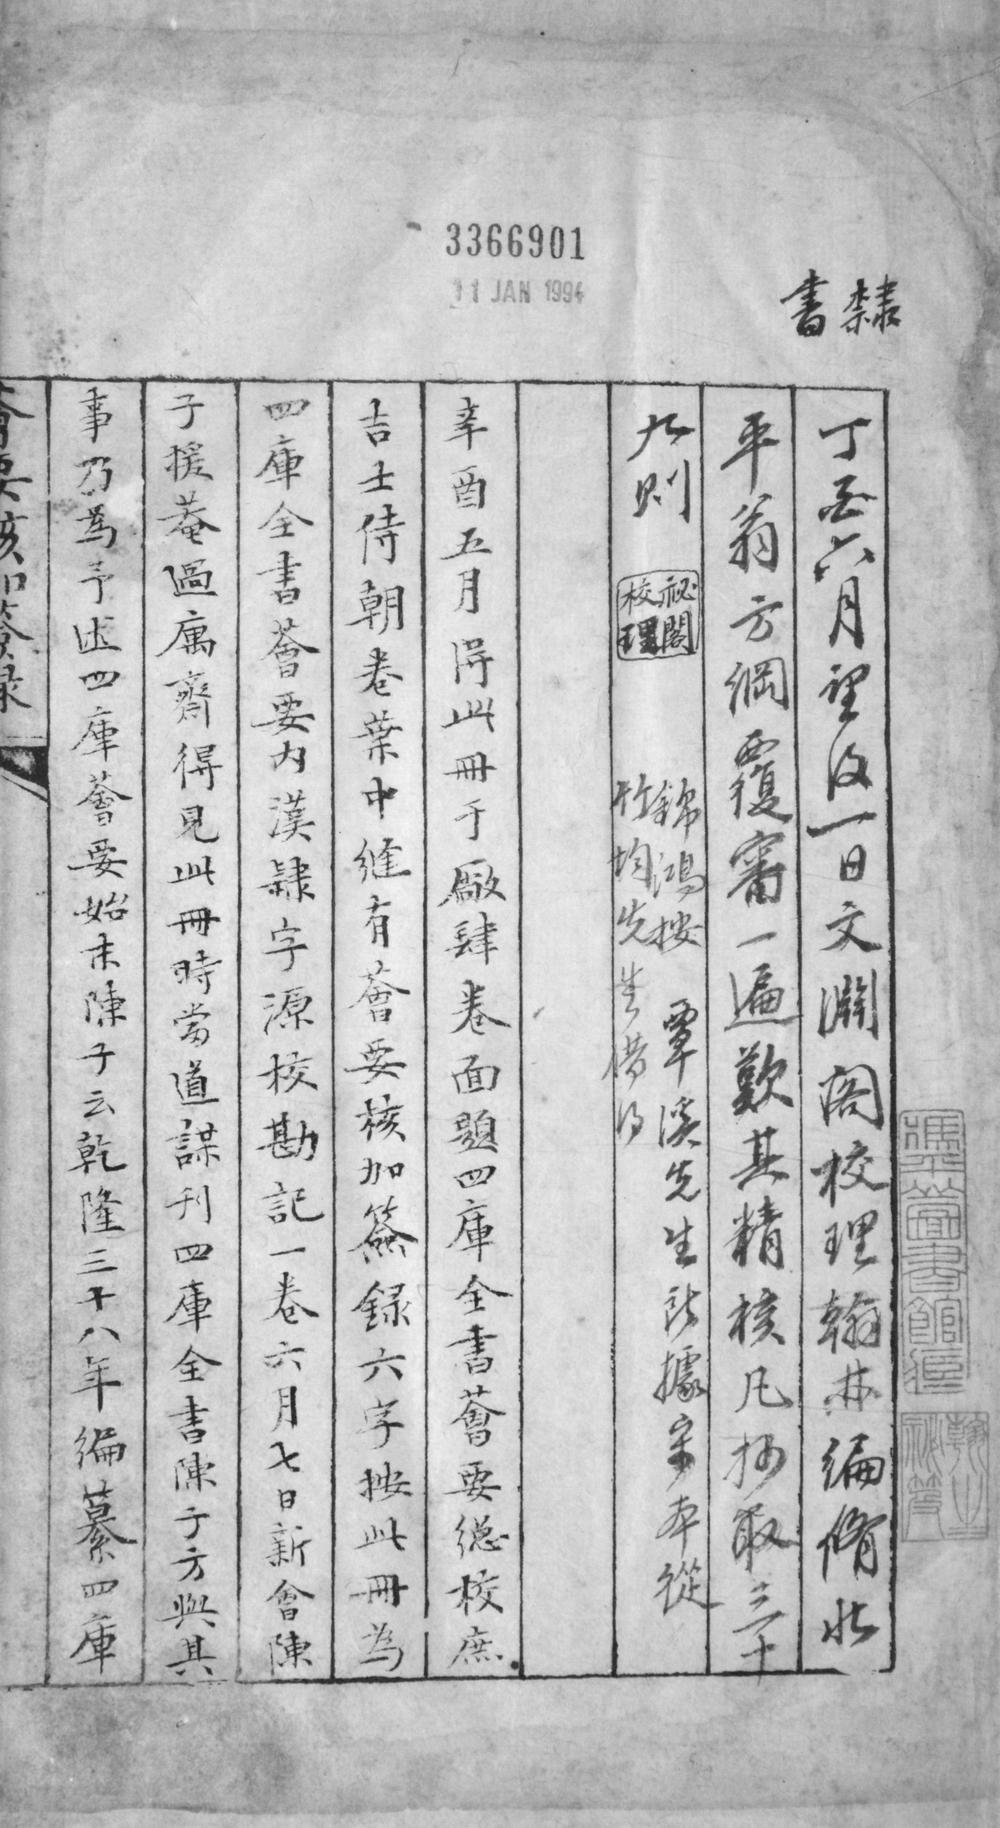 3366901
11 JAN 1994
隸書
丁丑六月望後一日文淵閣校理翰林編脩北
平翁方綱覆審一遍歎其精核凡抄取三十
九則
祕閣校理
錦鴻按 覃溪先生所據宋本從
竹均先生借得
辛酉五月得此冊于廠肆卷面題四庫全書薈要總校庶
吉士侍朝卷葉中縫有薈要核加籤錄六字按此冊為
四庫全書薈要内漢隸字源校勘記一卷六月七日新會陳
子援菴過厲齋得見此冊時當道謀刊四庫全書陳子方與其
事乃為予述四庫薈要始末陳子云乾隆三十八年編纂四庫
薈要核加簽录